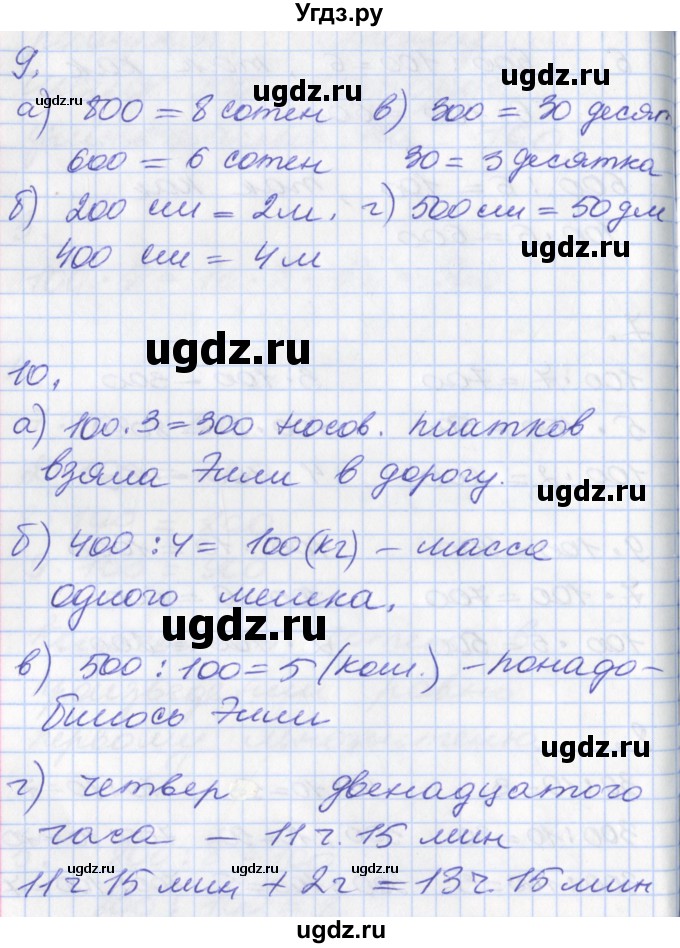 Угдз.ру
9.
а) 800 = 8 сотен в) 300 = 30 десят
600 = 6 сотен 30 = 3 десятка
б) 200 см = 2 м. г) 500 см = 50 дм
400 см = 4 м
10.
а) 100 · 3 = 300 носов. платков
взяла Эили в дорогу.
б) 400 : 4 = 100 (кг) – масса
одного мешка.
в) 500 : 100 = 5 (кош.) – понадо-
билось Эили
г) четвер двенадцатого
часа – 11 ч. 15 мин
11 ч 15 мин + 2 ч = 13 ч. 15 мин
ugdz.ru
ugdz.ru
ugdz.ru
ugdz.ru
ugdz.ru
ugdz.ru
ugdz.ru
ugdz.ru
ugdz.ru
ugdz.ru
ugdz.ru
ugdz.ru